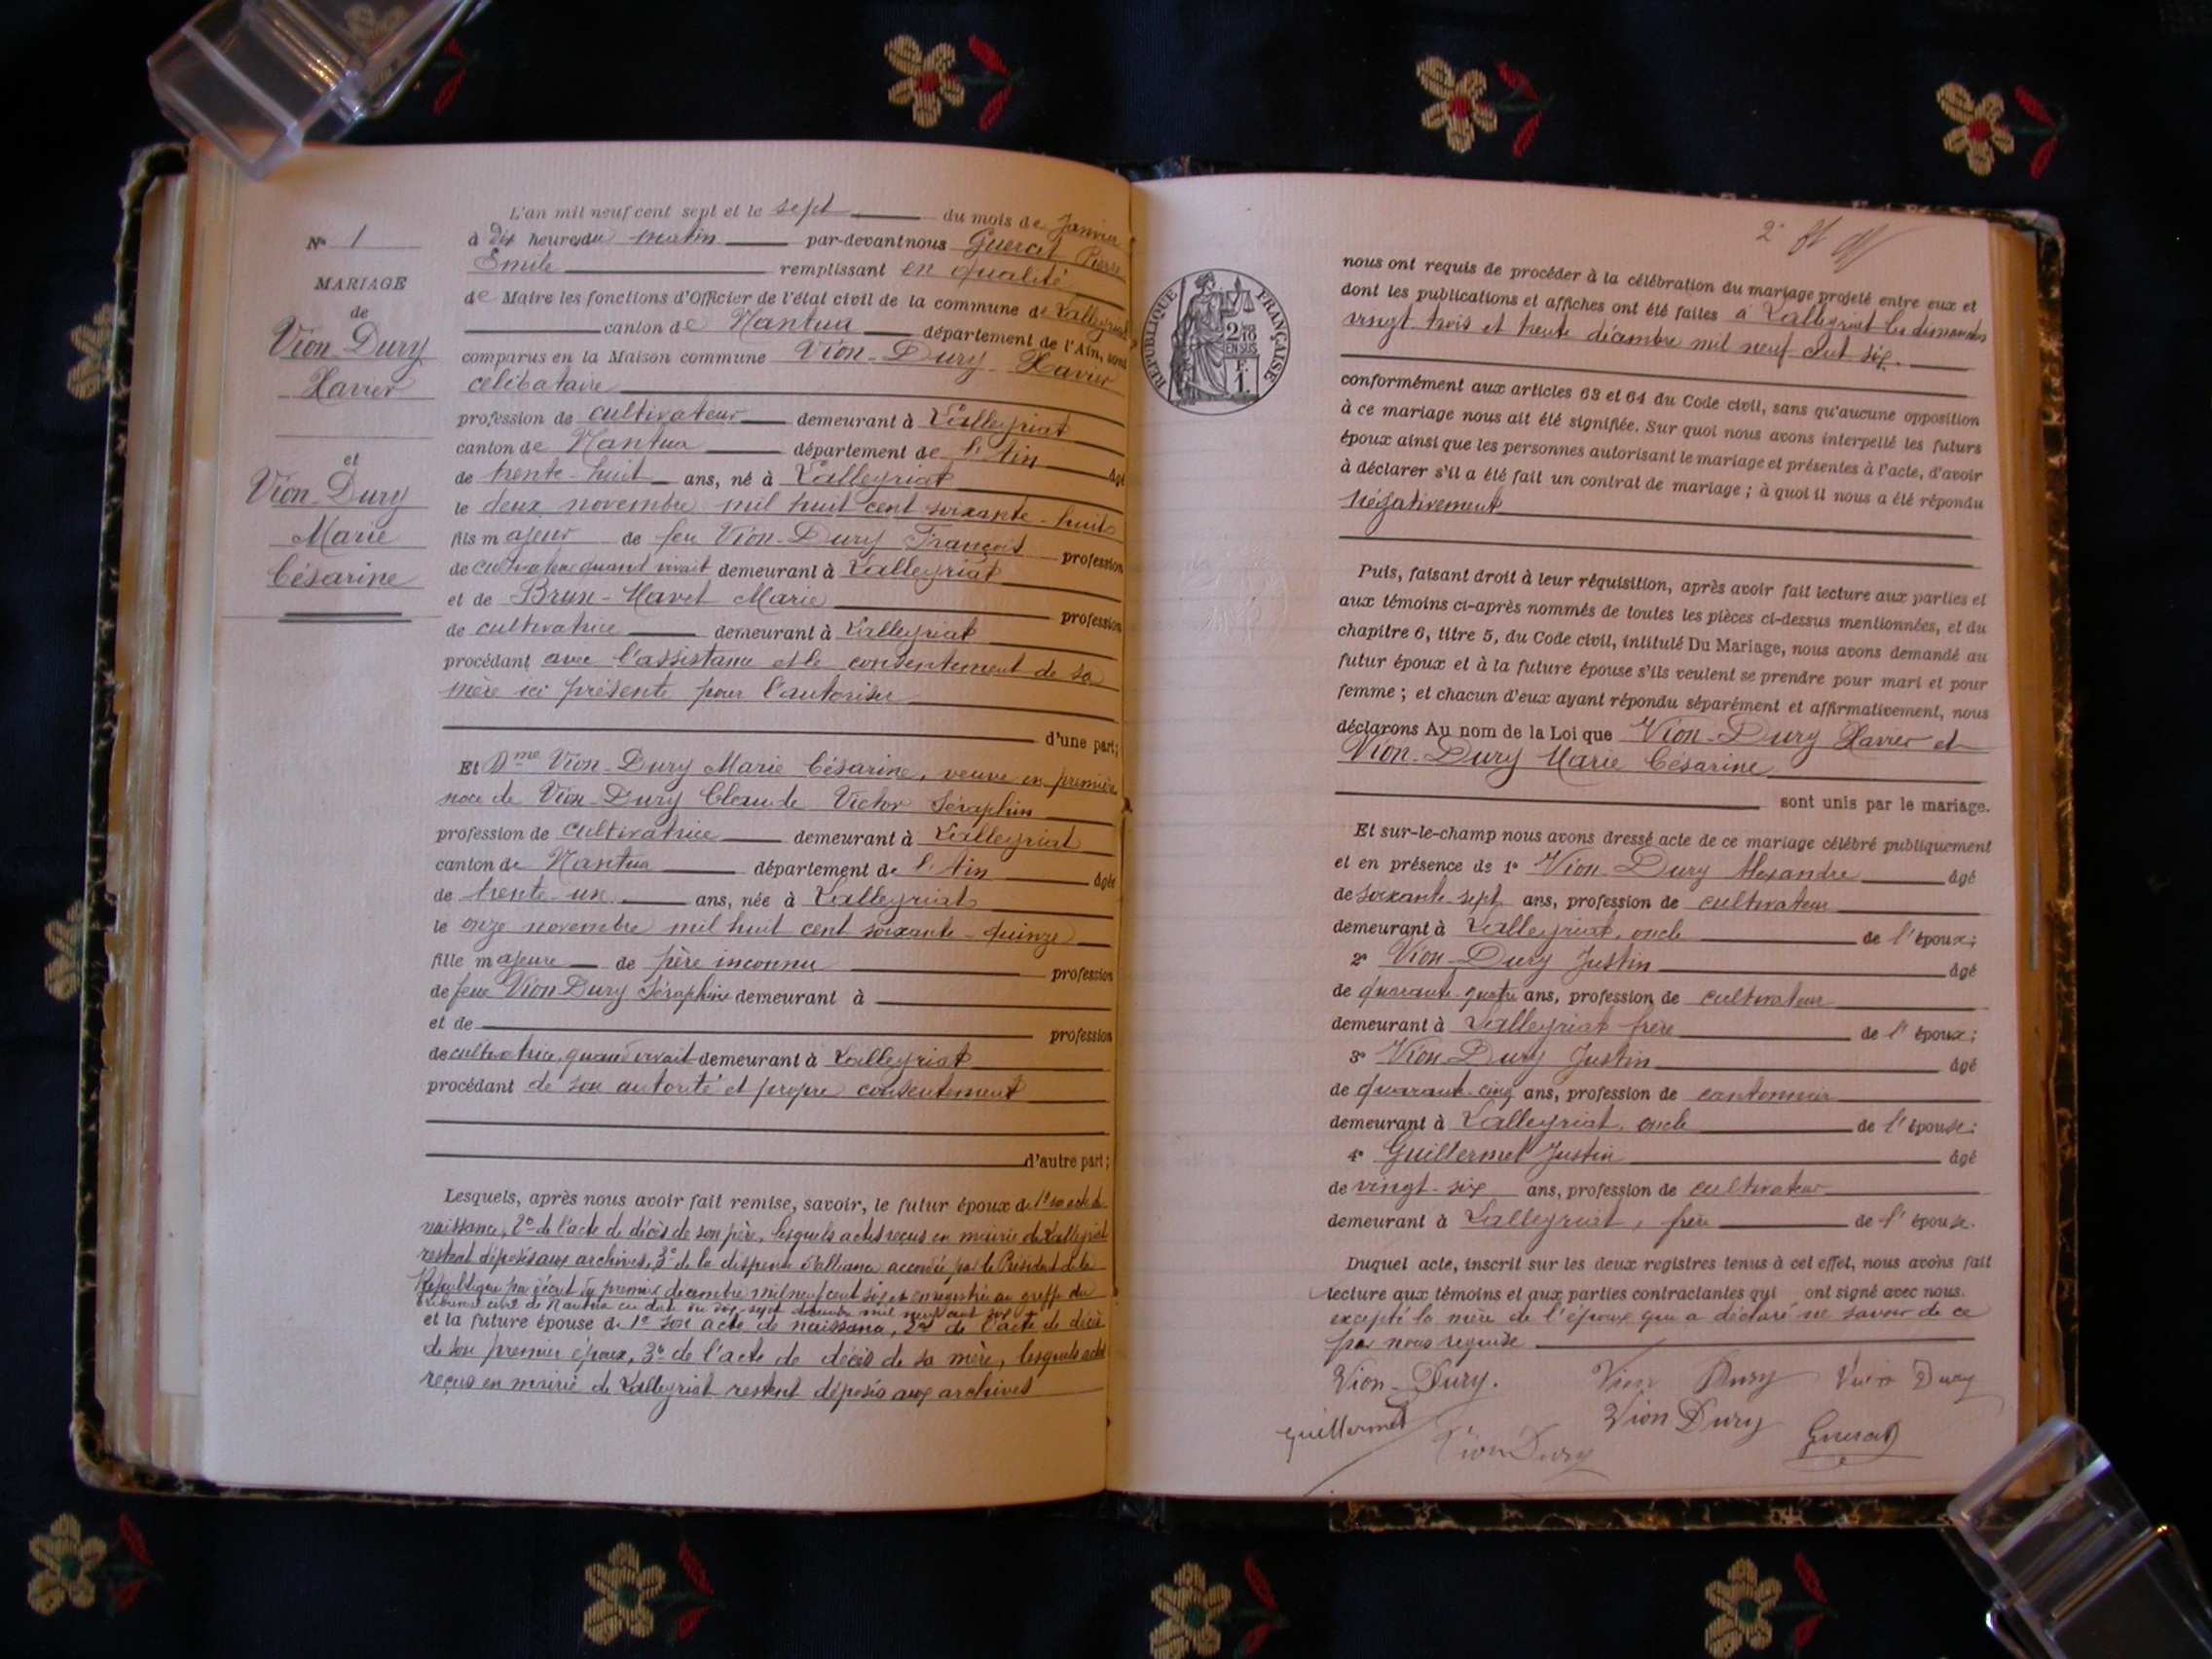 N° 1
MARIAGE
de
Vion-Dury
Xavier
et
Vion-Dury
Marie
Césarine
L'an mil neuf cent sept et le sept du mois de Janvier
à dix heures du matin par-devant nous Guercet Pierre
Emile remplissant en qualité
de Maire les fonctions d'Officier de l'état civil de la commune de Lalleyriat
canton de Nantua département de l'Ain, sont
comparus en la Maison commune Vion-Dury Xavier
célibataire
profession de cultivateur demeurant à Lalleyriat
canton de Nantua département de l'Ain âgé
de trente-huit ans, né à Lalleyriat
le deux novembre mil huit cent soixante-huit
fils majeur de feu Vion-Dury François profession
de cultivateur quand vivait demeurant à Lalleyriat
et de Brun-Havet Marie profession
de cultivatrice demeurant à Lalleyriat
procédant avec l'assistance et le consentement de sa
mère ici présente pour l'autoriser
d'une part;
Et Dme Vion-Dury Marie Césarine, veuve en première
noce de Vion-Dury Claude Victor Séraphin
profession de cultivatrice demeurant à Lalleyriat
canton de Nantua département de l'Ain âgée
de trente-un ans, née à Lalleyriat
le onze novembre mil huit cent soixante-quinze
fille majeure de père inconnu profession
de feue Vion-Dury Séraphine demeurant à
et de profession
de cultivatrice, quand vivait demeurant à Lalleyriat
procédant de son autorité et propre consentement
d'autre part;
Lesquels, après nous avoir fait remise, savoir, le futur époux de 1° son acte de
naissance, 2° de l'acte de décès de son père, lesquels actes reçus en mairie de Lalleyriat
restent déposés aux archives, 3° de la dispense d'alliance accordée par le Président de la
République par décret du premier décembre mil neuf cent six et enregistrée au greffe du
tribunal civil de Nantua en date du dix-sept décembre mil neuf cent six
et la future épouse de 1° son acte de naissance, 2° de l'acte de décès
de son premier époux, 3° de l'acte de décès de sa mère, lesquels actes
reçus en mairie de Lalleyriat restent déposés aux archives
REPUBLIQUE FRANÇAISE
2/10
EN SUS
F.
1.
nous ont requis de procéder à la célébration du mariage projeté entre eux et
dont les publications et affiches ont été faites à Lalleyriat les dimanches
vingt trois et trente décembre mil neuf cent six.
conformément aux articles 63 et 64 du Code civil, sans qu'aucune opposition
à ce mariage nous ait été signifiée. Sur quoi nous avons interpellé les futurs
époux ainsi que les personnes autorisant le mariage et présentes à l'acte, d'avoir
à déclarer s'il a été fait un contrat de mariage; à quoi il nous a été répondu
négativement
Puis, faisant droit à leur réquisition, après avoir fait lecture aux parties et
aux témoins ci-après nommés de toutes les pièces ci-dessus mentionnées, et du
chapitre 6, titre 5, du Code civil, intitulé Du Mariage, nous avons demandé au
futur époux et à la future épouse s'ils veulent se prendre pour mari et pour
femme; et chacun d'eux ayant répondu séparément et affirmativement, nous
déclarons Au nom de la Loi que Vion-Dury Xavier et
Vion-Dury Marie Césarine
sont unis par le mariage.
Et sur-le-champ nous avons dressé acte de ce mariage célébré publiquement
et en présence de 1° Vion-Dury Alexandre âgé
de soixante-sept ans, profession de cultivateur
demeurant à Lalleyriat, oncle de l'époux;
2° Vion-Dury Justin âgé
de quarante-quatre ans, profession de cultivateur
demeurant à Lalleyriat frère de l'époux;
3° Vion-Dury Justin âgé
de quarante-cinq ans, profession de cantonnier
demeurant à Lalleyriat, oncle de l'épouse;
4° Guillermet Justin âgé
de vingt-six ans, profession de cultivateur
demeurant à Lalleyriat, frère de l'épouse.
Duquel acte, inscrit sur les deux registres tenus à cet effet, nous avons fait
lecture aux témoins et aux parties contractantes qui ont signé avec nous.
excepté la mère de l'époux qui a déclaré ne savoir de ce
par nous requise
Vion-Dury. Vion Dury Vion Dury
guillermet Vion Dury Vion Dury Guercet